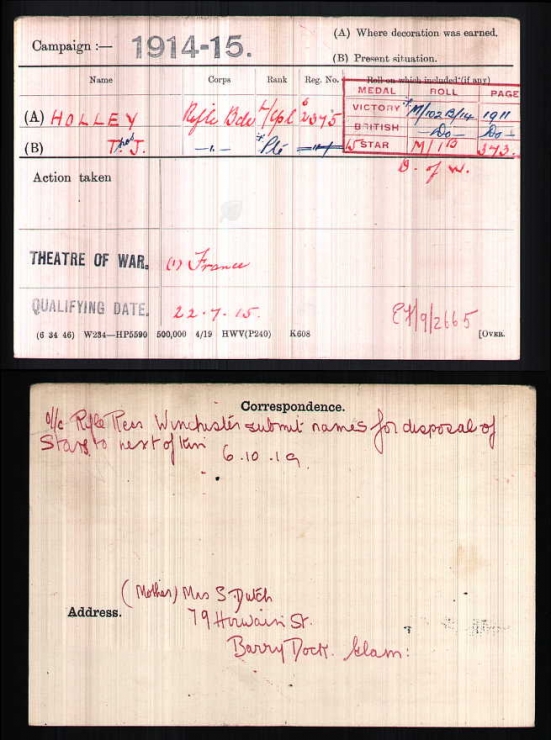 Campaign :— 1914-15.
(A) Where decoration was earned.
(B) Present situation.
Name Corps Rank Reg. No. Roll on which included (if any)
MEDAL ROLL PAGE
(A) HOLLEY Rifle Bde L/Cpl
VICTORY * M/102B/14 1911
BRITISH —Do— Do—
(B) Thos J. —„— * Pte —„—
15 STAR M/1B 373.
Action taken D. of W.
THEATRE OF WAR. (1) France
QUALIFYING DATE. 22.7.15.
EF/9/2665
(6 34 46) W234—HP5590 500,000 4/19 HWV(P240) K608 [OVER.
Correspondence.
o/c Rifle Recs Winchester submit names for disposal of
Stars to next of kin 6.10.19.
(Mother) Mrs S. Dutch
Address. 79 St.
Barry Dock. Glam: